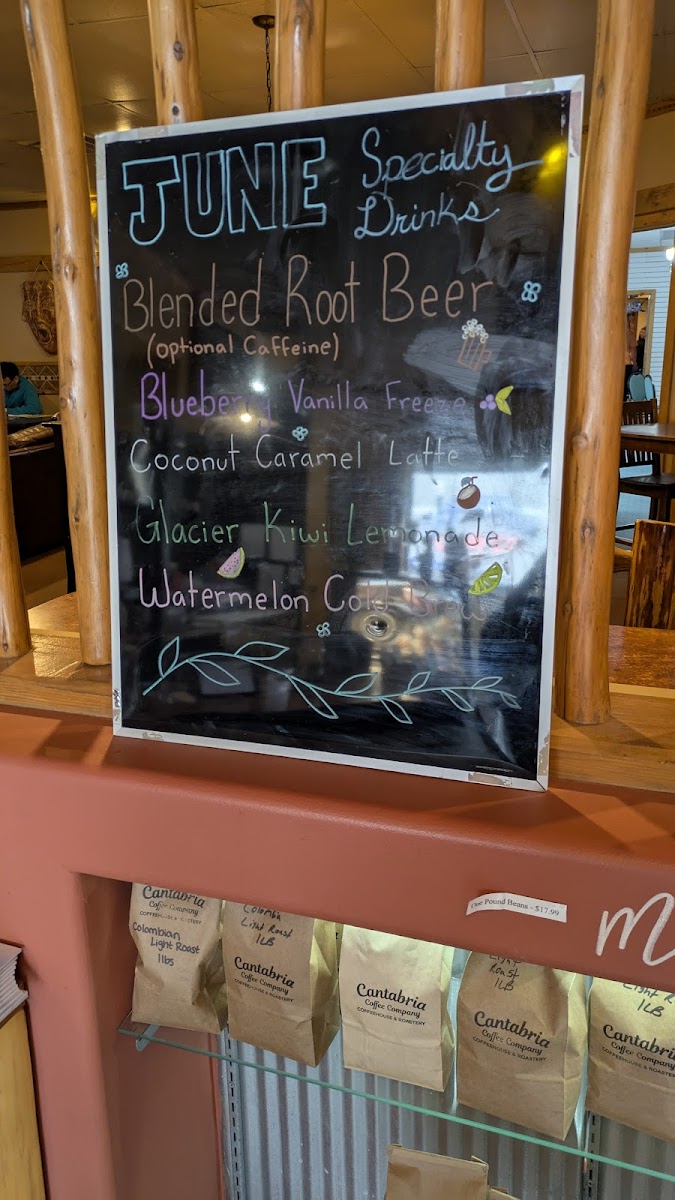 JUNE Specialty Drinks
Blended Root Beer
(optional Caffeine)
Blueberry Vanilla Freeze
Coconut Caramel Latte
Glacier Kiwi Lemonade
Watermelon Cold Brew
One Pound Beans - $17.99
m
Cantabria
Coffee Company
COFFEEHOUSE & ROASTERY
Colombian
Light Roast
1lbs
Colombia
Light Roast
1LB
Cantabria
Coffee Company
COFFEEHOUSE & ROASTERY
Cantabria
Coffee Company
COFFEEHOUSE & ROASTERY
Light
Roast
1LB
Cantabria
Coffee Company
COFFEEHOUSE & ROASTERY
Light Roast
1LB
Cantabria
Coffee Company
COFFEEHOUSE & ROASTERY